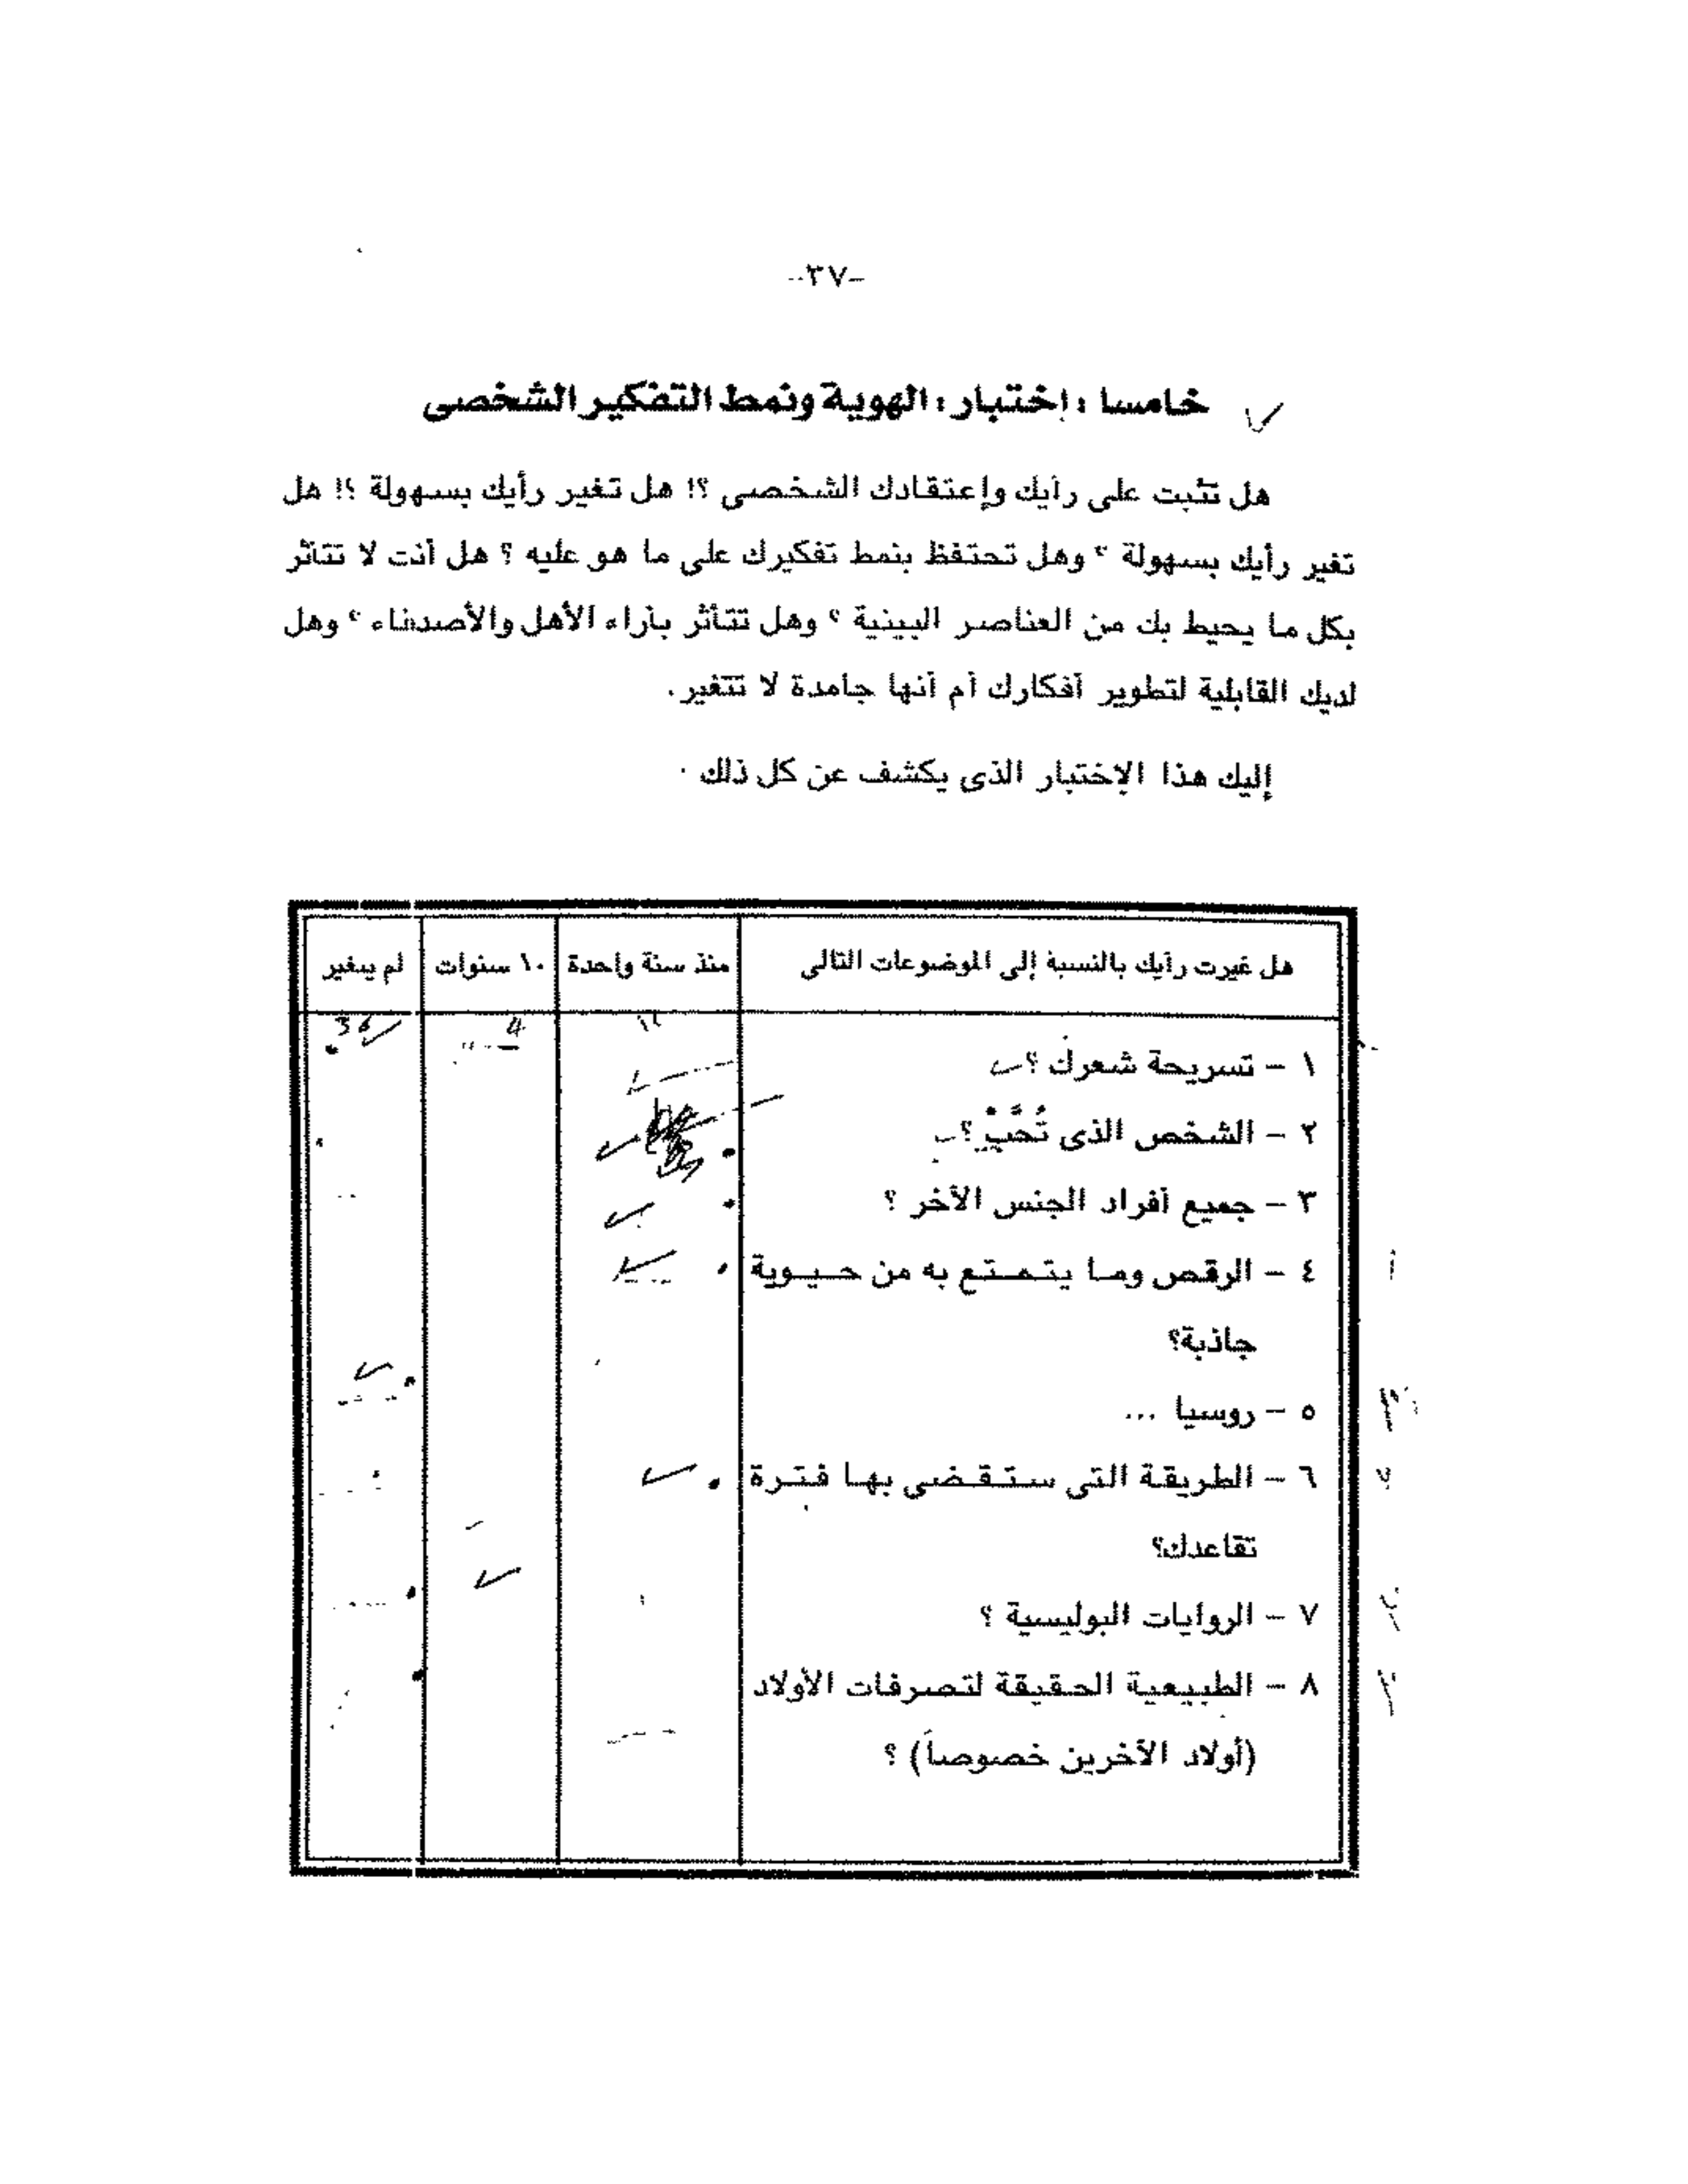 -٣٧-
خامسا : إختبار : الهوية ونمط التفكير الشخصى
هل تثبت على رأيك وإعتقادك الشخصى ؟! هل تغير رأيك بسهولة ؟! هل
تغير رأيك بسهولة ؟ وهل تحتفظ بنمط تفكيرك على ما هو عليه ؟ هل أنت لا تتأثر
بكل ما يحيط بك من العناصر البيئية ؟ وهل تتأثر بآراء الأهل والأصدقاء ؟ وهل
لديك القابلية لتطوير أفكارك أم أنها جامدة لا تتغير.
إليك هذا الإختبار الذى يكشف عن كل ذلك .
هل غيرت رأيك بالنسبة إلى الموضوعات التالى منذ سنة واحدة ١٠ سنوات لم يتغير
4 36
١ - تسريحة شعرك ؟
٢ - الشخص الذى تُحَبْ ؟
٣ - جميع أفراد الجنس الآخر ؟
٤ - الرقص وما يتمتع به من حيوية
جاذبة؟
٥ - روسيا ...
٦ - الطريقة التى ستقضى بها فترة
تقاعدك؟
٧ - الروايات البوليسية ؟
٨ - الطبيعية الحقيقة لتصرفات الأولاد
(أولاد الآخرين خصوصاً) ؟